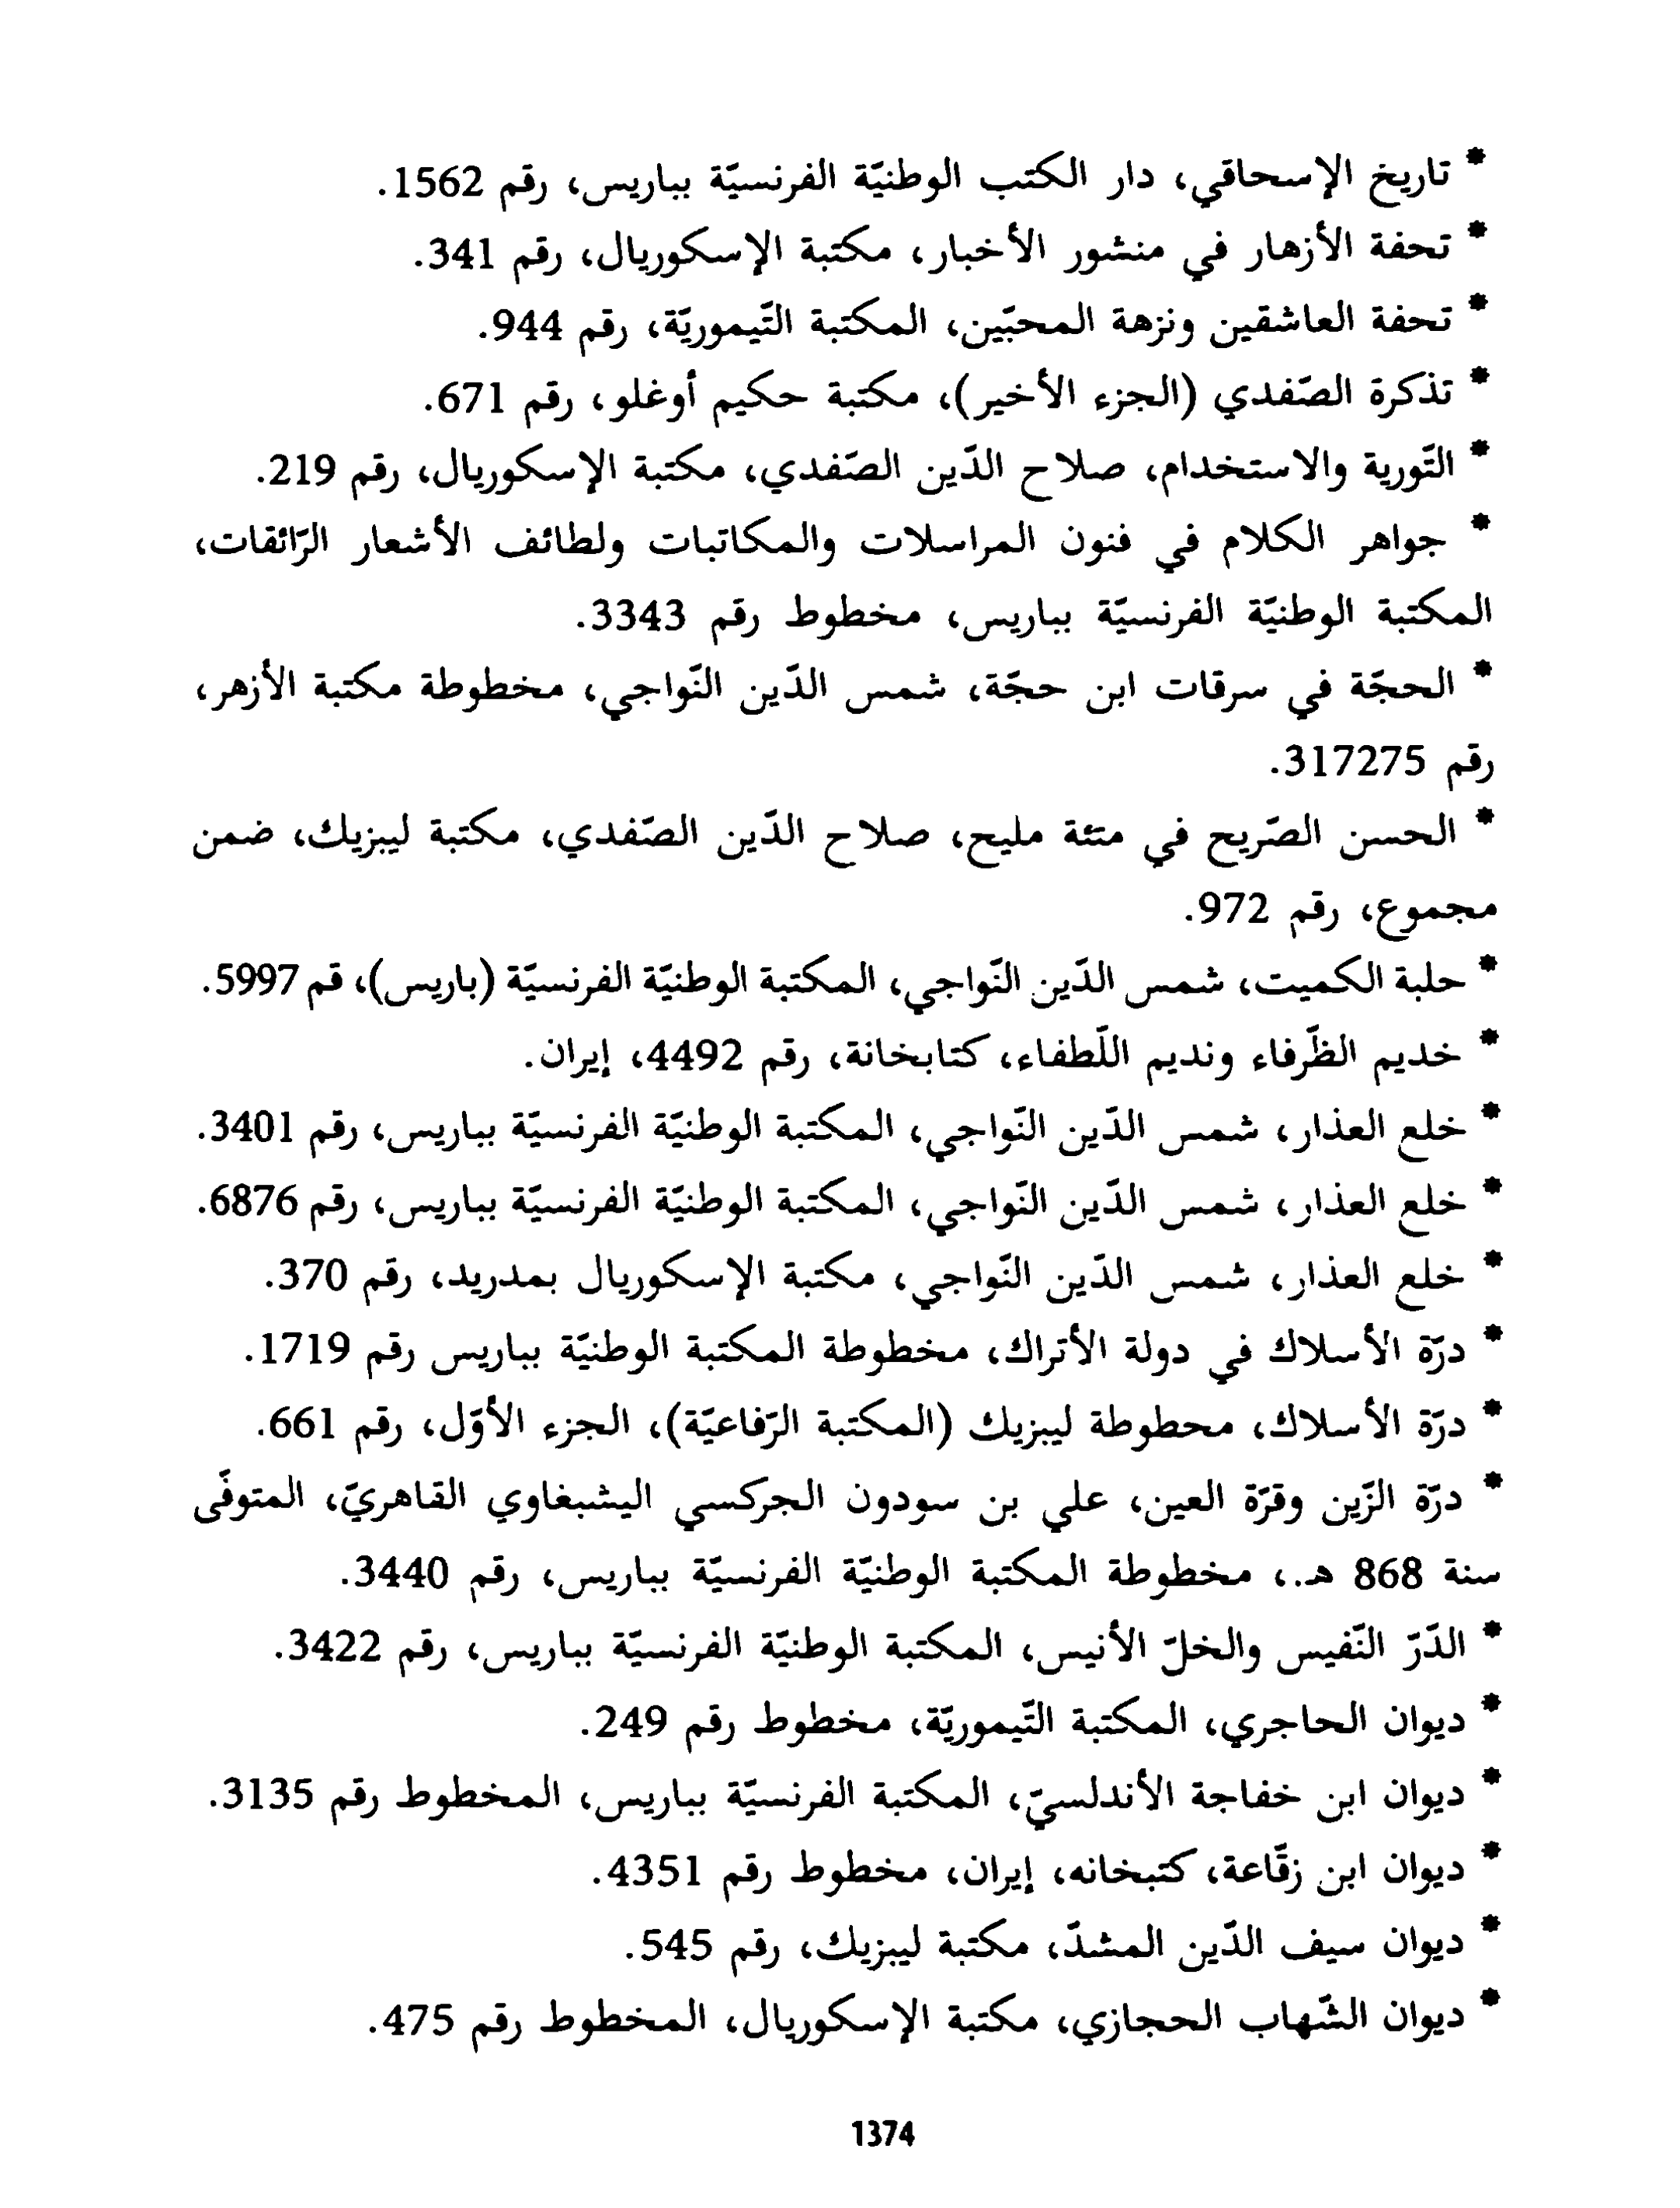 * تاريخ الإسحاقي، دار الكتب الوطنيّة الفرنسيّة بباريس، رقم 1562.
* تحفة الأزهار في منشور الأخبار، مكتبة الإسكوريال، رقم 341.
* تحفة العاشقين ونزهة المحبّين، المكتبة التّيموريّة، رقم 944.
* تذكرة الصّفدي (الجزء الأخير)، مكتبة حكيم أوغلو، رقم 671.
* التّورية والاستخدام، صلاح الدّين الصّفدي، مكتبة الإسكوريال، رقم 219.
* جواهر الكلام في فنون المراسلات والمكاتبات ولطائف الأشعار الرّائقات،
المكتبة الوطنيّة الفرنسيّة بباريس، مخطوط رقم 3343.
* الحجّة في سرقات ابن حجّة، شمس الدّين النّواجي، مخطوطة مكتبة الأزهر،
رقم 317275.
* الحسن الصّريح في مئة مليح، صلاح الدّين الصّفدي، مكتبة ليبزيك، ضمن
مجموع، رقم 972.
* حلبة الكميت، شمس الدّين النّواجي، المكتبة الوطنيّة الفرنسيّة (باريس)، قم 5997.
* خديم الظّرفاء ونديم اللّطفاء، كتابخانة، رقم 4492، إيران.
* خلع العذار، شمس الدّين النّواجي، المكتبة الوطنيّة الفرنسيّة بباريس، رقم 3401.
* خلع العذار، شمس الدّين النّواجي، المكتبة الوطنيّة الفرنسيّة بباريس، رقم 6876.
* خلع العذار، شمس الدّين النّواجي، مكتبة الإسكوريال بمدريد، رقم 370.
* درّة الأسلاك في دولة الأتراك، مخطوطة المكتبة الوطنيّة بباريس رقم 1719.
* درّة الأسلاك، محطوطة ليبزيك (المكتبة الرّفاعيّة)، الجزء الأوّل، رقم 661.
* درّة الزّين وقرّة العين، علي بن سودون الجركسي اليشبغاوي القاهريّ، المتوفّى
سنة 868 هـ.، مخطوطة المكتبة الوطنيّة الفرنسيّة بباريس، رقم 3440.
* الدّرّ النّفيس والخلّ الأنيس، المكتبة الوطنيّة الفرنسيّة بباريس، رقم 3422.
* ديوان الحاجري، المكتبة التّيموريّة، مخطوط رقم 249.
* ديوان ابن خفاجة الأندلسيّ، المكتبة الفرنسيّة بباريس، المخطوط رقم 3135.
* ديوان ابن زقّاعة، كتبخانه، إيران، مخطوط رقم 4351.
* ديوان سيف الدّين المشدّ، مكتبة ليبزيك، رقم 545.
* ديوان الشّهاب الحجازي، مكتبة الإسكوريال، المخطوط رقم 475.
1374